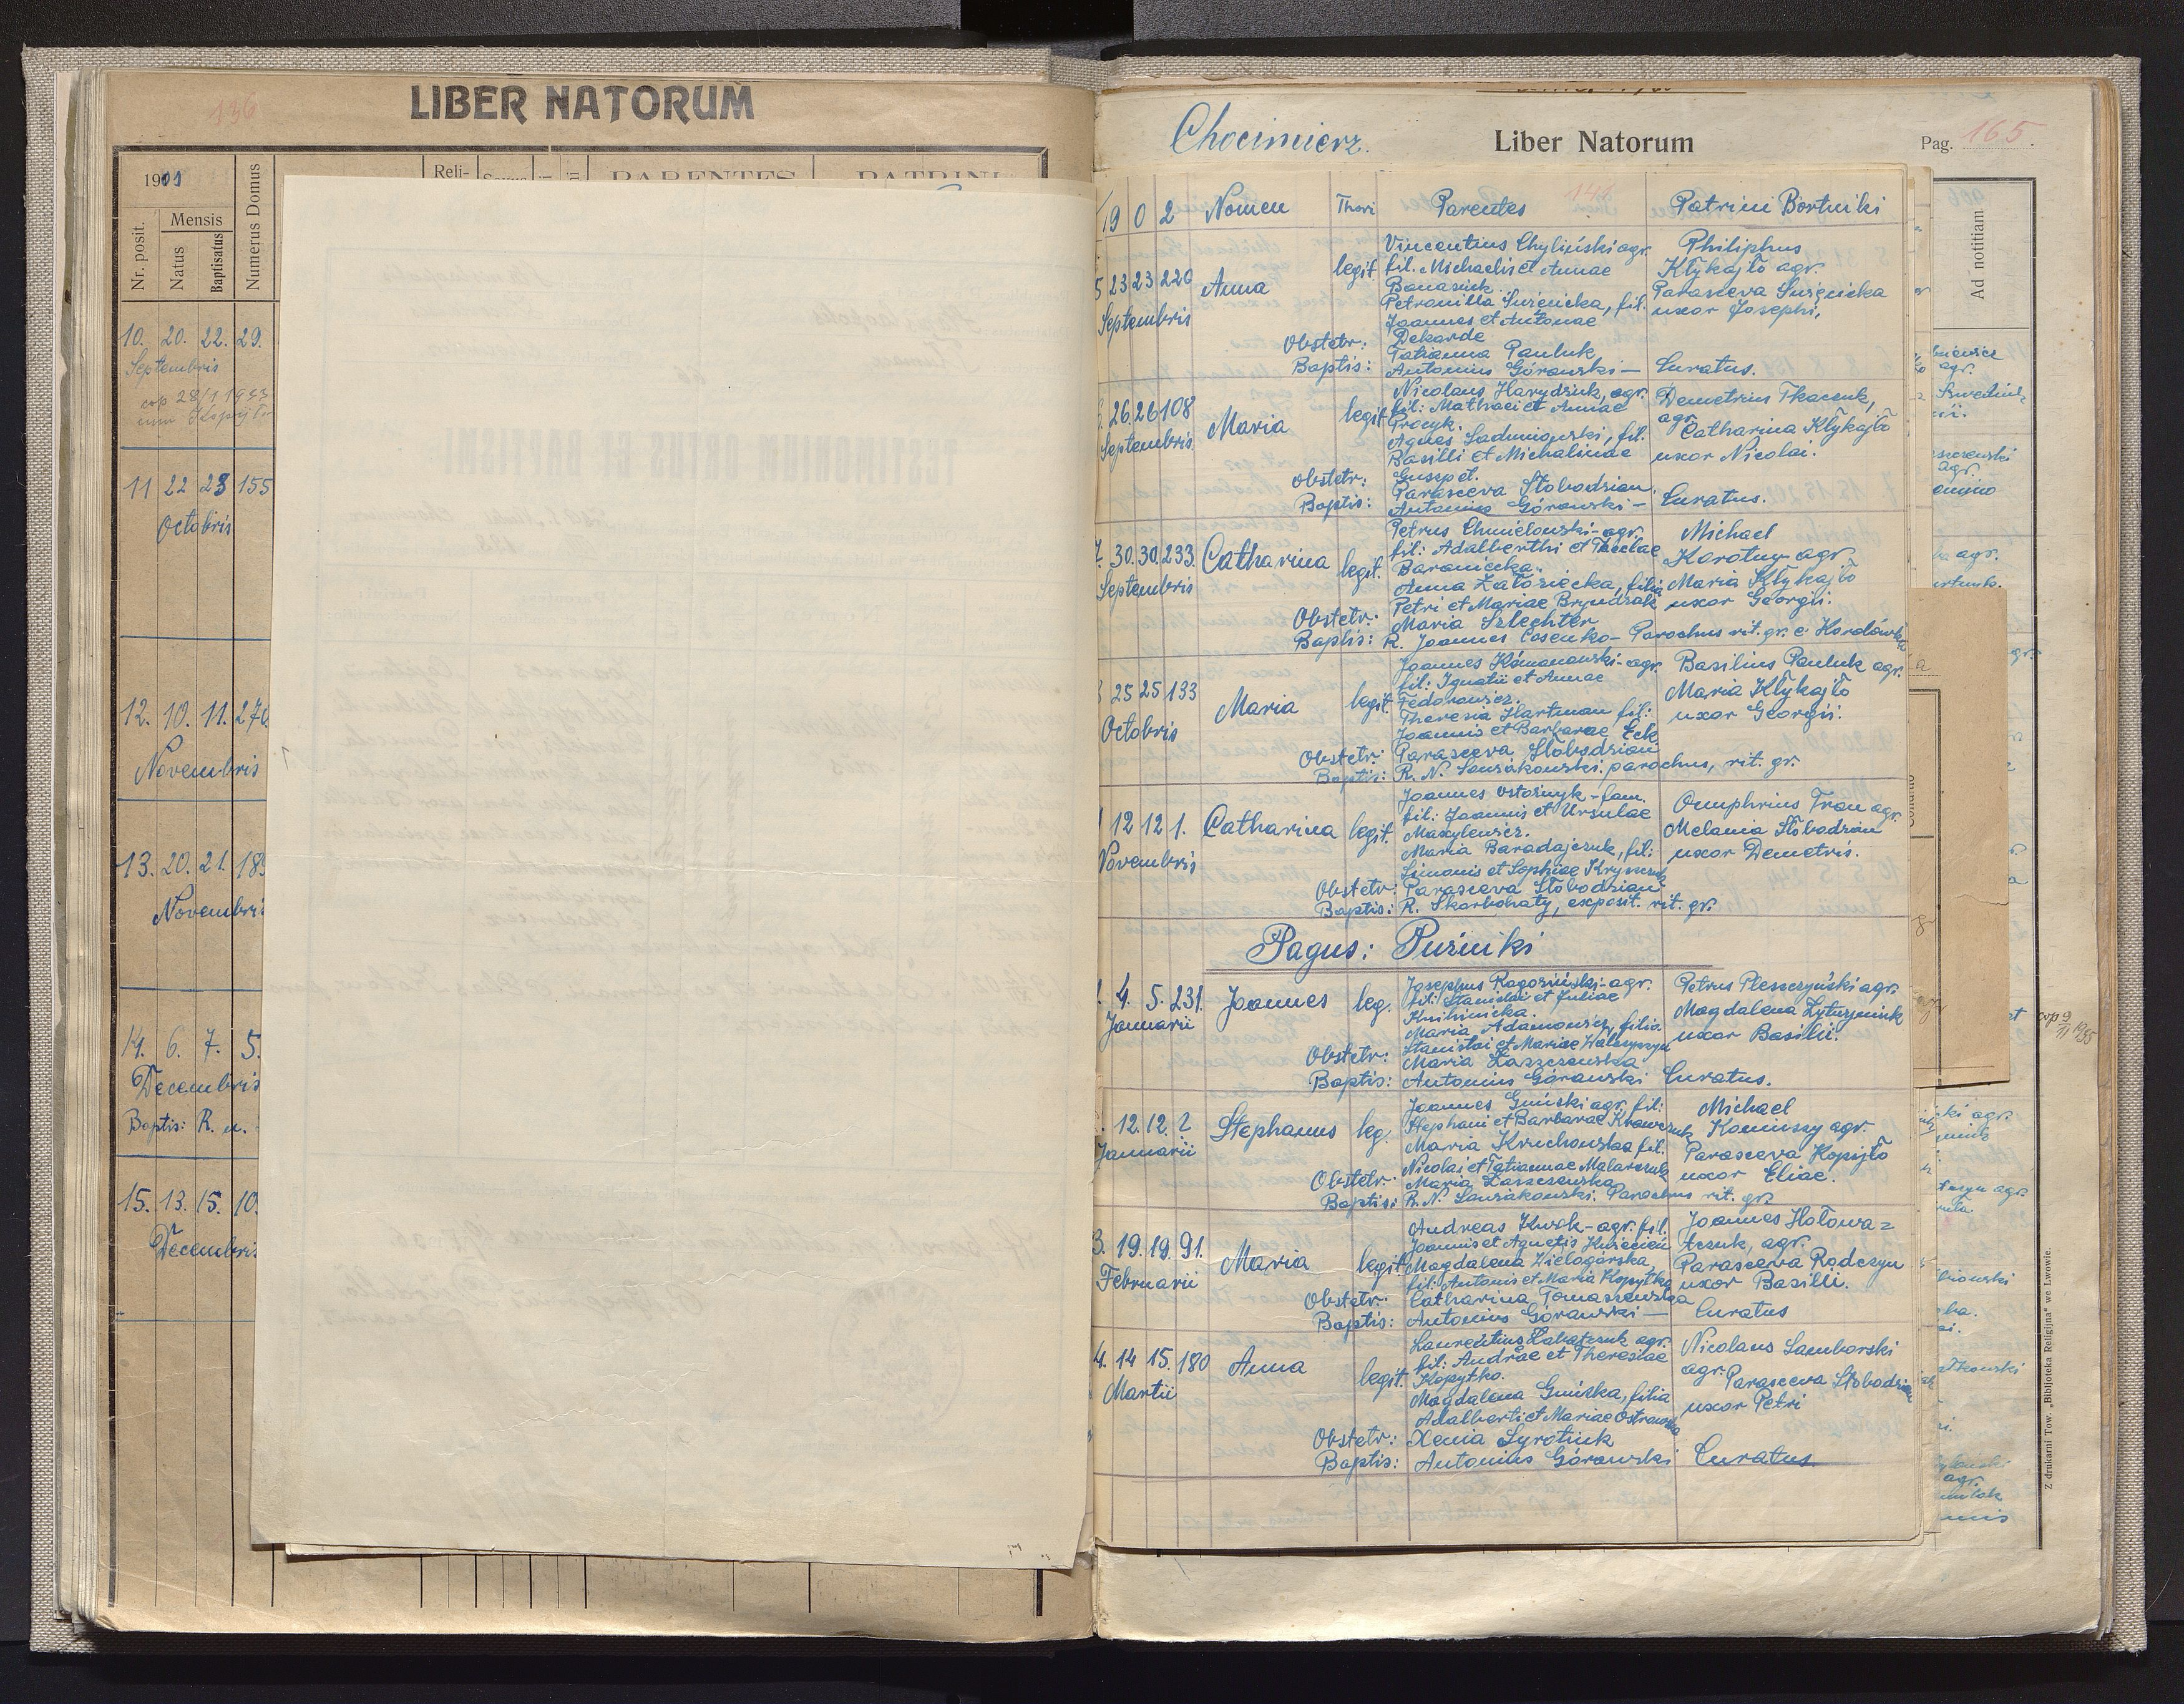 136
LIBER NATORUM
1901
Nr. posit.
Mensis
Natus
Baptisatus
Numerus Domus
Reli-
PARENTES
PATRINI
10. 20. 22. 29.
Septembris
cop 28/1 1933
cum Kopyjło
11 22 23 155
Octobris
12. 10. 11. 276
Novembris
13. 20. 21. 189
Novembris
14. 6. 7. 5.
Decembris
Baptis: R. n.
15. 13. 15. 10.
Decembris
Chocimierz.
Liber Natorum
Pag. 165.
Ad notitiam
1902 Nomen Thori Parentes Patrini Bortniki
5 23 23 220 Anna legit.
Septembris
Vincentius Chyliński agr.
fil. Michaelis et Annae
Banasiuk.
Petronilla Sużnicka, fil.
Joannes et Antonae
Dekarde
Philiphus
Kłykajło agr.
Parasceva Sużnicka
uxor Josephi,
Obstetr: Tatianna Pauluk
Baptis: Antonius Górawski — Curatus.
26. 26 108 Maria legit.
Septembris
Nicolaus Harydziuk, agr.
fil: Mathaei et Annae
Procyk.
Agnes Sadmiowski, fil.
Basilli et Michalinae
Guspet.
Demetrius Tkaczuk,
agr.
Catharina Kłykajło
uxor Nicolai.
Obstetr: Parasceva Słobodzian
Baptis: Antonius Górawski — Curatus.
7. 30. 30. 233. Catharina legit.
Septembris
Petrus Chmielowski - agr.
fil: Adalberthi et Theclae
Baraniecka.
Anna Załoziecka, filia
Petri et Mariae Bryndzak
Michael
Korotny - agr.
Maria Kłykajło
uxor Georgii.
Obstetr: Maria Szlechter
Baptis: R. Joannes Cosenko - Parochus rit. gr. e Hordówka
25 25 133 Maria legit.
Octobris
Joannes Kśmanowski - agr.
fil: Ignatii et Annae
Fedorowicz.
Theresia Hartman fil:
Joannis et Barbarae Eck
Basilius Pauluk agr.
Maria Kłykajło
uxor Georgii.
Obstetr: Parasceva Słobodzian
Baptis: R. N. Sensiakowski. parochus, rit. gr.
12 12 1. Catharina legit.
Novembris
Joannes Ostożnyk - fam.
fil: Joannis et Ursulae
Maxylewicz.
Maria Baradajczuk, fil:
Simonis et Sophiae Kryszczuk
Onuphrius Tran agr.
Melania Słobodzian
uxor Demetris.
Obstetr: Parasceva Słobodzian
Baptis: R. Skorbohaty, exposit. rit. gr.
Pagus: Puźniki
1. 4. 5. 231. Joannes leg.
Januarii
Josephus Rogoziński - agr.
fil: Stanislai et Juliae
Knihinicka.
Maria Adamowicz, filia
Stanislai et Mariae Walczyszyn
Petrus Pleszczyński agr.
Magdalena Zyturyniuk
uxor Basilii.
Obstetr: Maria Łaszczewska
Baptis: Antonius Górawski Curatus.
12. 12. 2 Stephanus leg.
Januarii
Joannes Gniński agr. fil:
Stephani et Barbarae Krawczuk
Maria Kruchowska fil.
Nicolai et Tatiannae Malarczuk
Michael
Kominszy agr.
Parasceva Kopyjło
uxor Eliae.
Obstetr: Maria Łaszczewska
Baptis: R. N. Sensiakowski. Parochus rit. gr.
3. 19. 19. 91. Maria legit.
Februarii
Andreas Kurzk - agr. fil.
Joannis et Agnetis Kuziecień
Magdalena Wielogórska,
fil: Antonis et Maria Kopytko
Joannes Hołowa=
tczuk, agr.
Parasceva Rodczyn
uxor Basilli.
Obstetr: Catharina Tomaszewska
Baptis: Antonius Górawski — Curatus
4. 14 15. 180 Anna legit.
Martii
Laurentius Labatczuk agr.
fil: Andrae et Theresiae
Kopytko.
Magdalena Gnińska, filia
Adalberti et Mariae Ostrowska
Nicolaus Samborski
agr.
Parasceva Słobodzian
uxor Petri
Obstetr: Xenia Syrotiuk
Baptis: Antonius Górawski Curatus
cop 9/VI 1935
Z drukarni Tow. „Bibljoteka Religijna" we Lwowie.